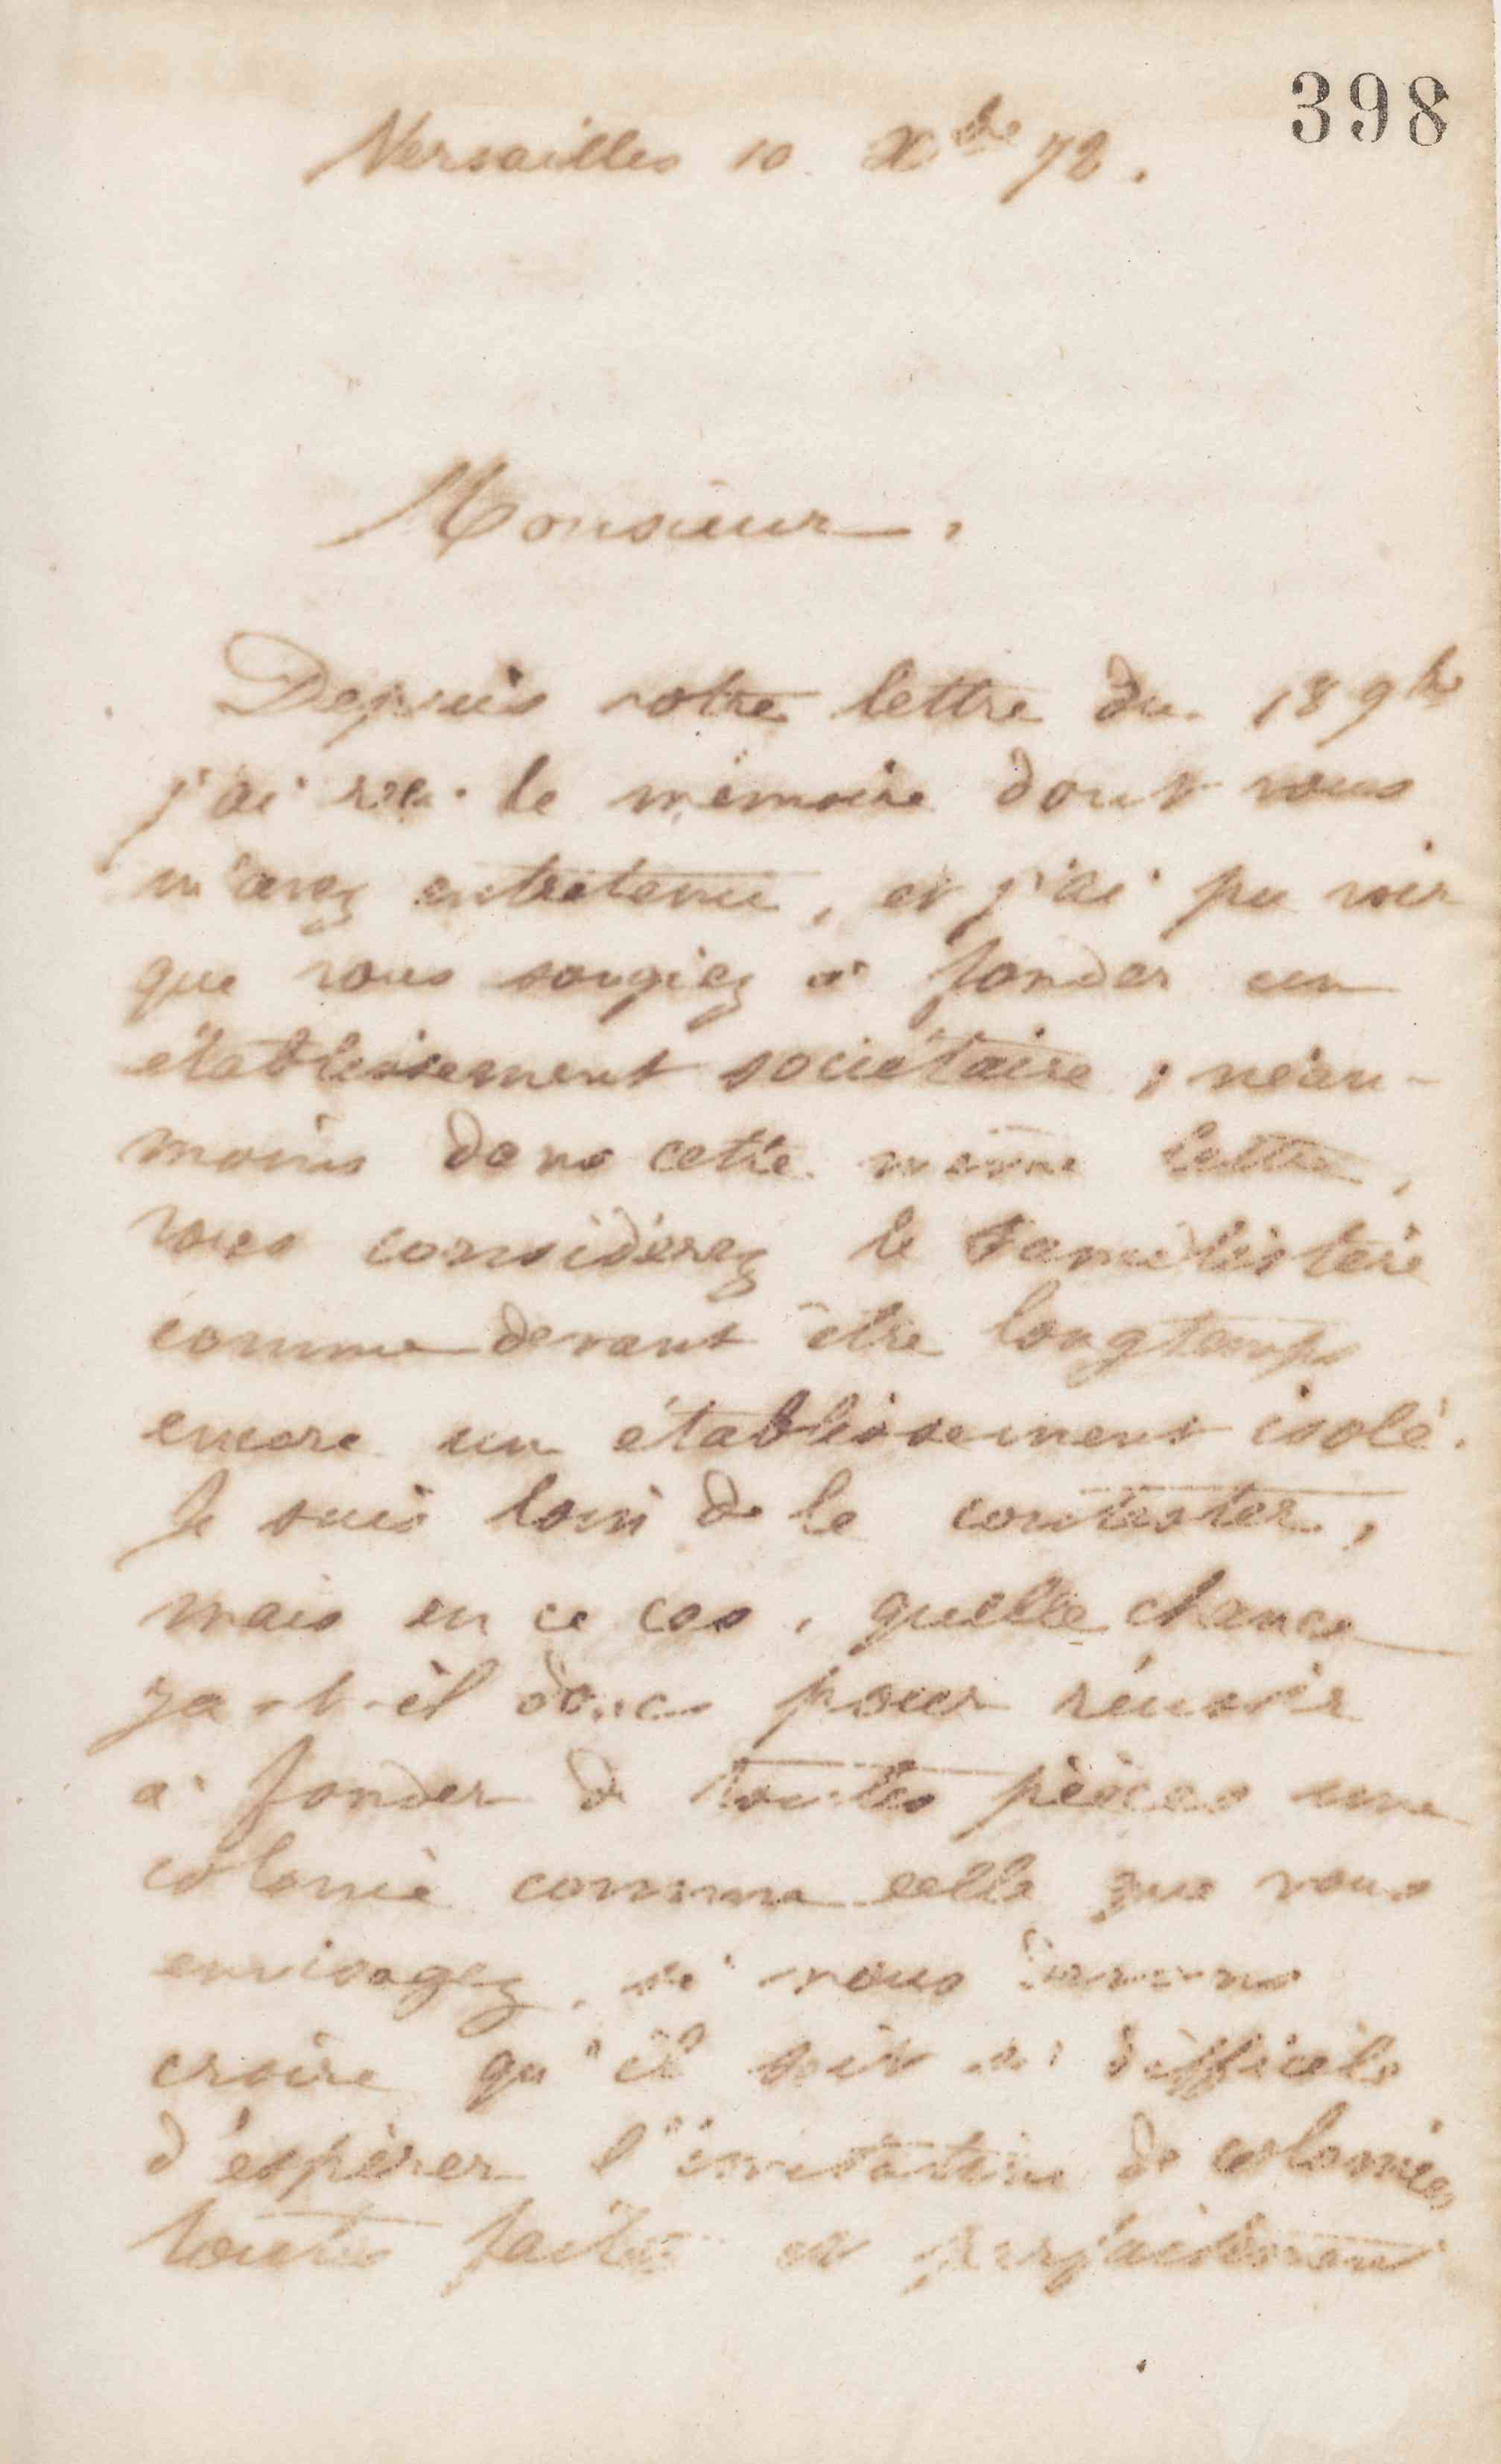 398
Versailles 10 Xbre 72.
Monsieur,
Depuis votre lettre du 18 9bre
j'ai reçu le mémoire dont vous
m'avez entretenu, et j'ai pu voir
que vous songiez à fonder un
établissement sociétaire ; néan-
moins dans cette même lettre,
vous considérez le Familistère
comme devant être longtemps
encore un établissement isolé.
Je suis loin de le contester,
mais en ce cas, quelle chance
y a-t-il donc pour réussir
à fonder de toutes pièces une
colonie comme celle que vous
envisagez, si nous devons
croire qu'il soit si difficile
d'espérer l'imitation de colonies
toutes faites et parfaitement